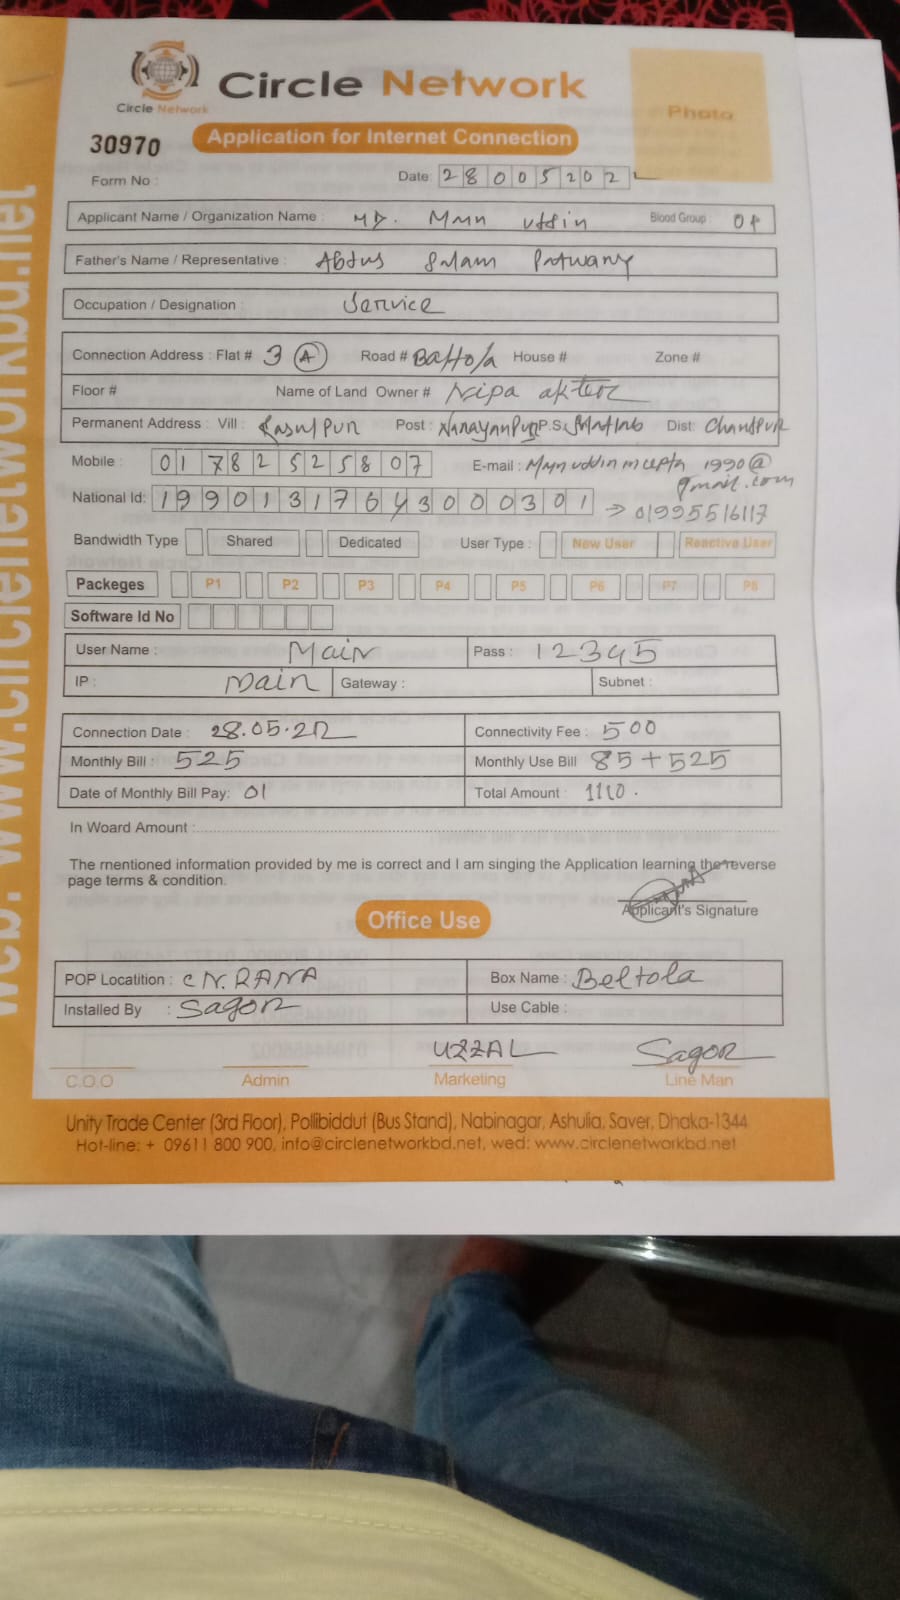 Circle Network
Circle Network
Photo
30970
Application for Internet Connection
Form No :
Date: 28005202
Applicant Name / Organization Name : MD. Myn uddin Blood Group : O+
Father's Name / Representative : Abdus Salam Patwary
Occupation / Designation : Service
Connection Address : Flat # 3 (A) Road # Battola House # Zone #
Floor # Name of Land Owner # Nipa akter
Permanent Address : Vill : Rasulpur Post : Narayanpur P.S: Dist: Chandpur
Mobile : 01782525807 E-mail : 1990@
gmail.com
National Id: 19901317643000301 → 01995516117
Bandwidth Type Shared Dedicated User Type : New User Reactive User
Packeges P1 P2 P3 P4 P5 P6 P7 P8
Software Id No
User Name : Main Pass : 12345
IP : Main Gateway : Subnet :
Connection Date : 28.05.22 Connectivity Fee : 500
Monthly Bill : 525 Monthly Use Bill 85+525
Date of Monthly Bill Pay: 01 Total Amount : 1110.
In Woard Amount :
The rnentioned information provided by me is correct and I am singing the Application learning the reverse
page terms & condition.
Applicant's Signature
Office Use
POP Locatition : CN.RANA Box Name : Beltola
Installed By : Sagor Use Cable :
UZZAL Sagor
C.O.O Admin Marketing Line Man
Unity Trade Center (3rd Floor), Pollibiddut (Bus Stand), Nabinagar, Ashulia, Saver, Dhaka-1344
Hot-line: + 09611 800 900, info@circlenetworkbd.net, wed: www.circlenetworkbd.net
web: www.circlenetworkbd.net